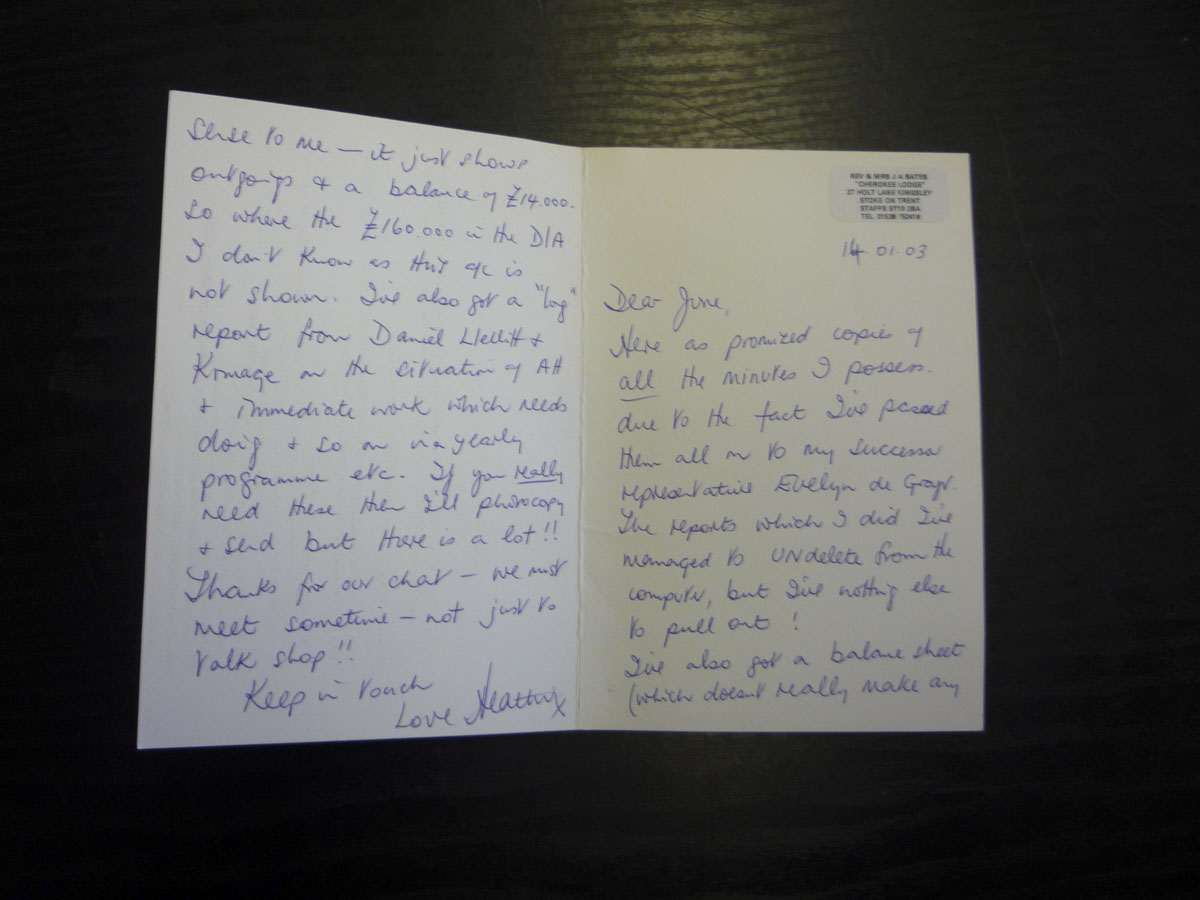 REV & MRS J A BATES
"CHEROKEE LODGE"
27 HOLT LANE KINGSLEY
STOKE ON TRENT
STAFFS ST10 2BA
TEL 01538 752419
14 01.03
Dear June,
Here as promized copies of
all the minutes I possess.
due to the fact I've passed
them all on to my successor
representative Evelyn de
The reports which I did I've
managed to UNdelete from the
computer, but I've nothing else
to pull out !
I've also got a balance sheet
(which doesn't really make any
sense to me – it just shows
outgoings & a balance of £14.000.
So where the £160.000 in the D/A
I don't know as this a/c is
not shown. I've also got a "log"
report from Daniel &
on the situation of AH
& immediate work which needs
doing & so on via yearly
programme etc. If you really
need these then I'll photocopy
& send but there is a lot !!
Thanks for our chat – we must
meet sometime – not just to
talk shop !!
Keep in touch
Love Heather x